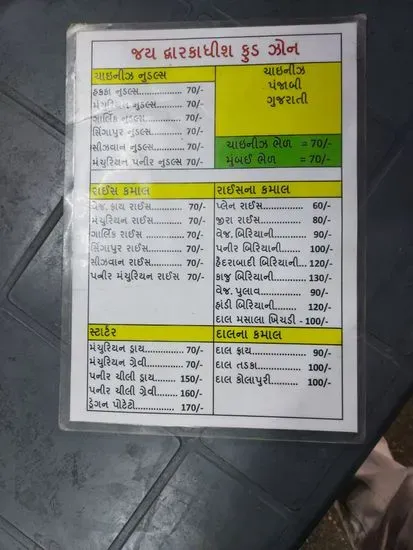 જય દ્વારકાધીશ ફુડ ઝોન
ચાઇનીઝ નુડલ્સ
હક્કા નુડલ્સ............... 70/-
મંચુરિયન નુડલ્સ........ 70/-
ગાર્લિક નુડલ્સ ........... 70/-
સિંગાપુર નુડલ્સ......... 70/-
સીઝવાન નુડલ્સ......... 70/-
મંચુરિયન પનીર નુડલ્સ 70/-
ચાઇનીઝ
પંજાબી
ગુજરાતી
ચાઇનીઝ ભેળ = 70/-
મુંબઈ ભેળ = 70/-
રાઈસ કમાલ
વેજ. ફ્રાય રાઈસ......... 70/-
મંચુરિયન રાઈસ......... 70/-
ગાર્લિક રાઈસ ............ 70/-
સિંગાપુર રાઈસ.......... 70/-
સીઝવાન રાઈસ.......... 70/-
પનીર મંચુરિયન રાઈસ 70/-
રાઈસના કમાલ
પ્લેન રાઈસ................ 60/-
જીરા રાઈસ................ 80/-
વેજ. બિરિયાની........... 90/-
પનીર બિરિયાની......... 100/-
હૈદરાબાદી બિરિયાની... 120/-
કાજુ બિરિયાની........... 130/-
વેજ. પુલાવ................ 90/-
હાંડી બિરિયાની........... 120/-
દાલ મસાલા ખિચડી - 100/-
સ્ટાર્ટર
મંચુરિયન ડ્રાય........... 70/-
મંચુરિયન ગ્રેવી........... 70/-
પનીર ચીલી ડ્રાય........ 150/-
પનીર ચીલી ગ્રેવી........ 160/-
ડ્રેગન પોટેટો.............. 170/-
દાલના કમાલ
દાલ ફ્રાય................... 90/-
દાલ તડકા................. 100/-
દાલ કોલાપુરી............ 100/-